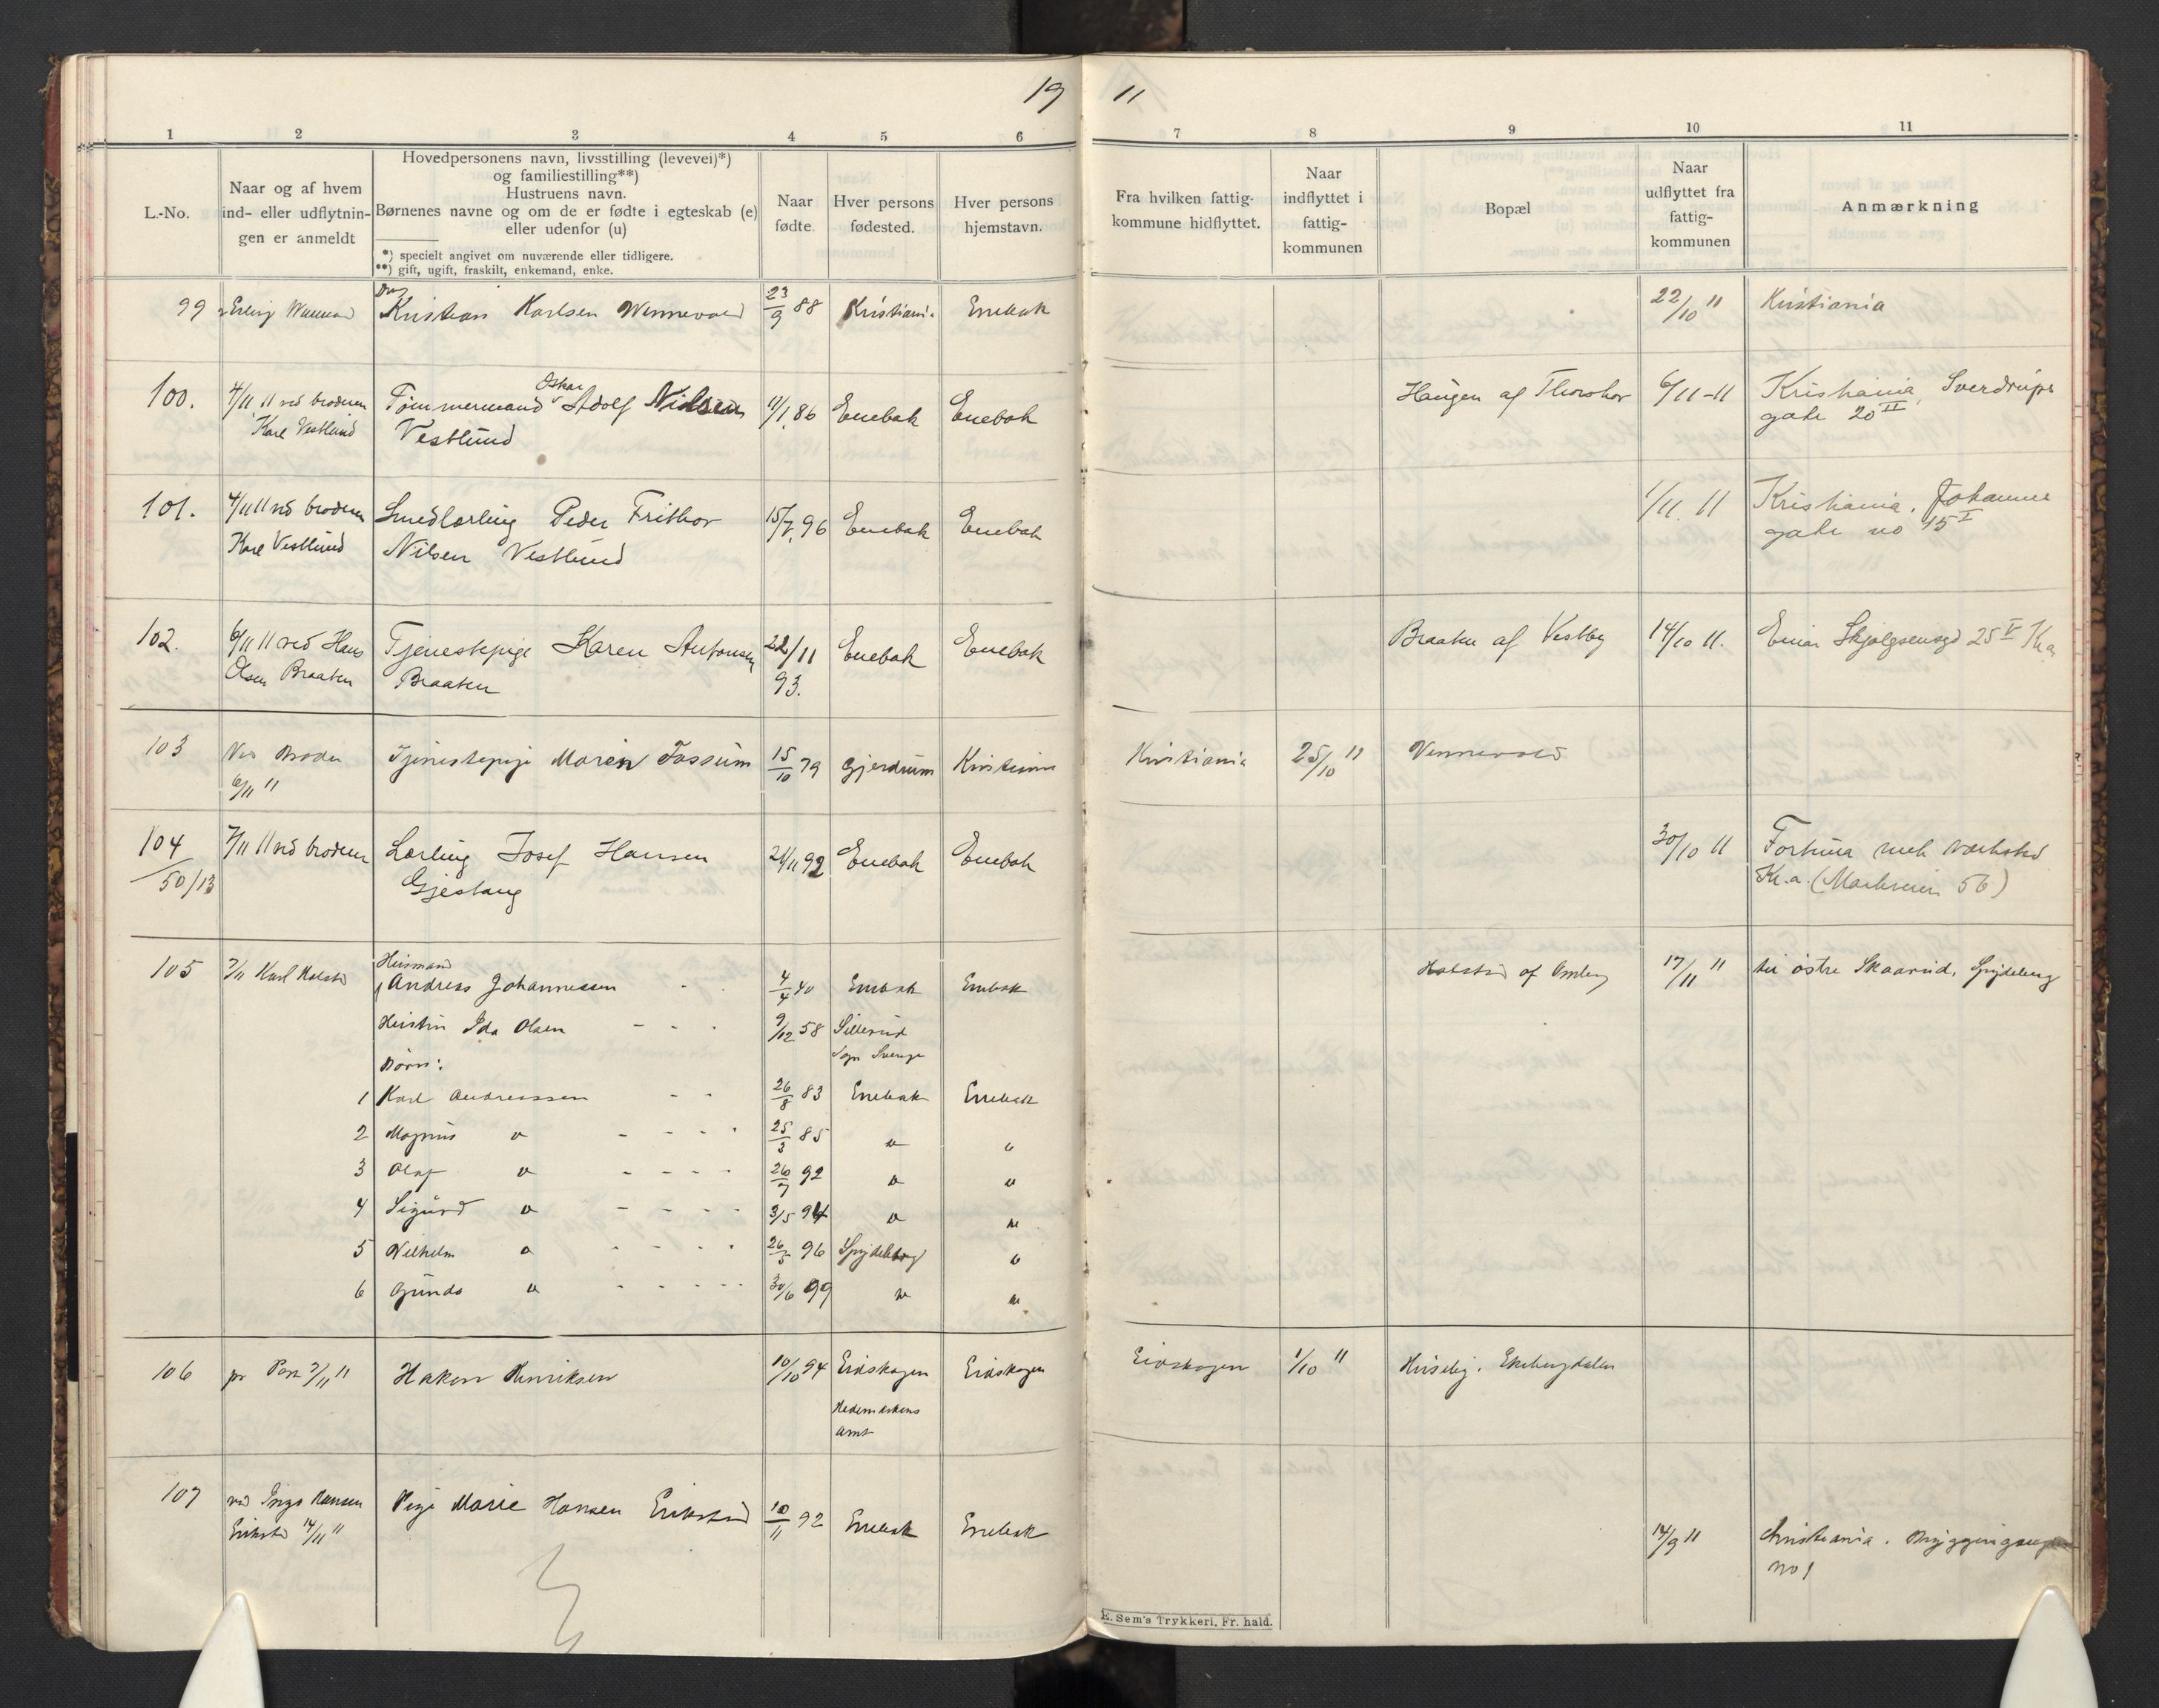 19 11
1 2 3 4 5 6 7 8 9 10 11
L.-No.
Naar og af hvem
ind- eller udflytnin-
gen er anmeldt
Hovedpersonens navn, livsstilling (levevei)*)
og familiestilling**)
Hustruens navn.
Børnenes navne og om de er fødte i egteskab (e)
eller udenfor (u)
*) specielt angivet om nuværende eller tidligere.
**) gift, ugift, fraskilt, enkemand, enke.
Naar
fødte.
Hver persons
fødested.
Hver persons
hjemstavn.
Fra hvilken fattig-
kommune hidflyttet.
Naar
indflyttet i
fattig-
kommunen
Bopæl
Naar
udflyttet fra
fattig-
kommunen
Anmærkning
99 Erling Kristian Karlsen Wennevold 23/9 88 Kristiania Enebak 22/10 11 Kristiania
100. 4/11 11 ved broderen Tømmermand Oskar Adolf Nielsen 11/1 86 Enebak Enebak Haugen af Thorshov 6/11-11 Kristiania, Sverdrups
Karl Vestlund Vestlund gate 20 II
101. 4/11 11 ved broderen Smedlærling Peder Frithov 15/7 96 Enebak Enebak 1/11 11 Kristiania, Johannes
Karl Vestlund Nilsen Vestlund gate no 15 I
102. 6/11 11 ved Hans Tjenestepige Karen Antonsen 22/11 Enebak Enebak Braaten af Vestby 14/10 11. Einar Skjolgsensgd 25 V Kr.a
Olsen Braaten Braaten 93.
103 Ved Broder Tjenestepige Maren Fossum 15/10 79 Gjerdrum Kristiania Kristiania 25/10 11 Vennevold
6/11 11
104 7/11 11 ved broderen Lærling Josef Hansen 24/11 92 Enebak Enebak 30/10 11 Fortuna mek værksted
50/13 Gjestang Kr.a. (Markveien 56)
105 7/11 Karl Holstad Husmand
Andreas Johannessen - - 4/4 40 Enebak Enebak Holstad af Omberg 17/11 11 til østre Skaarud, Spydeberg
Hustru Ida Olsen - - - 9/12 58 Sillerud
Sogn Sverige
Børn:
1 Karl Andreassen - - 26/8 83 Enebak Enebak
2 Magnus " - - - - 25/3 85 " "
3 Olaf " - - - - 26/7 92 " "
4 Sigurd " - - - - 3/5 94 " "
5 Vilhelm " - - - - 26/5 96 Spydeberg "
6 Gunda " - - - - - 30/6 99 " "
106 pr Post 7/11 11 Hakon Henriksen 10/10 94 Eidskogen Eidskogen Eidskogen 1/10 11 Huseby, Ekebergdalen
Hedemarkens
amt
107 ved Inga Hansen Pige Marie Hansen Erikstad 10/11 92 Enebak Enebak
Erikstad 14/11 11 14/9 11 Christiania.
no 1
E. Sem's Trykkeri, Fr. hald.